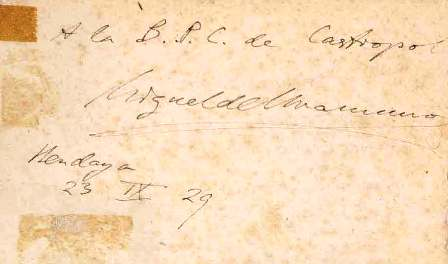 A la B. P. C. de Castropol
Miguel de Unamuno
Hendaya
23 IX 29